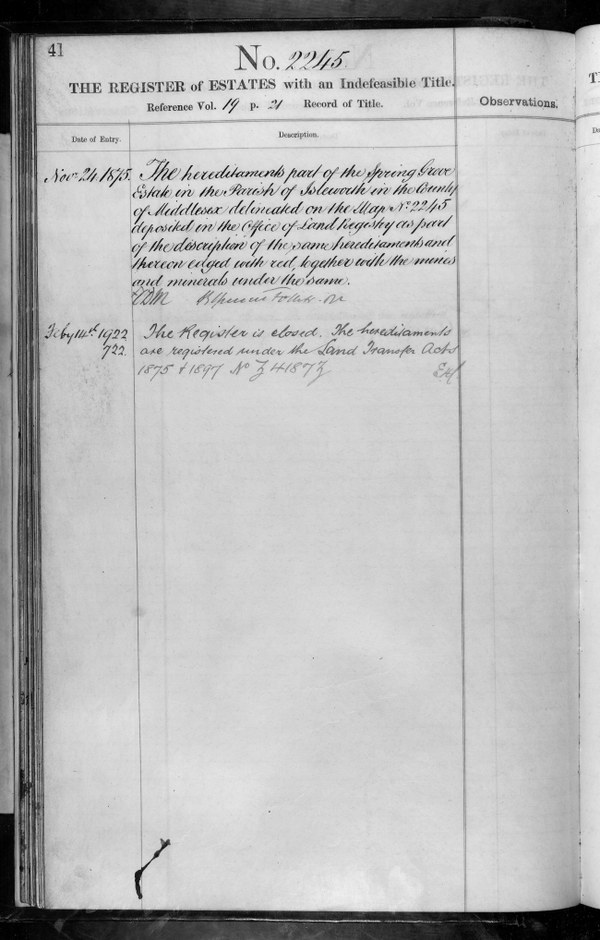 41
No. 2245.
THE REGISTER of ESTATES with an Indefeasible Title.
Reference Vol. 19 p. 21 Record of Title.
Observations.
Date of Entry.
Description.
Nov 24. 1875. The hereditaments part of the Spring Grove
Estate in the Parish of Isleworth in the County
of Middlesex delineated on the Map No. 2245
deposited in the Office of Land Registry as part
of the description of the same hereditaments and
thereon edged with red, together with the mines
and minerals under the same.
Feby 14th 1922 The Register is closed. The hereditaments
722. are registered under the Land Transfer Acts
1875 & 1897 No